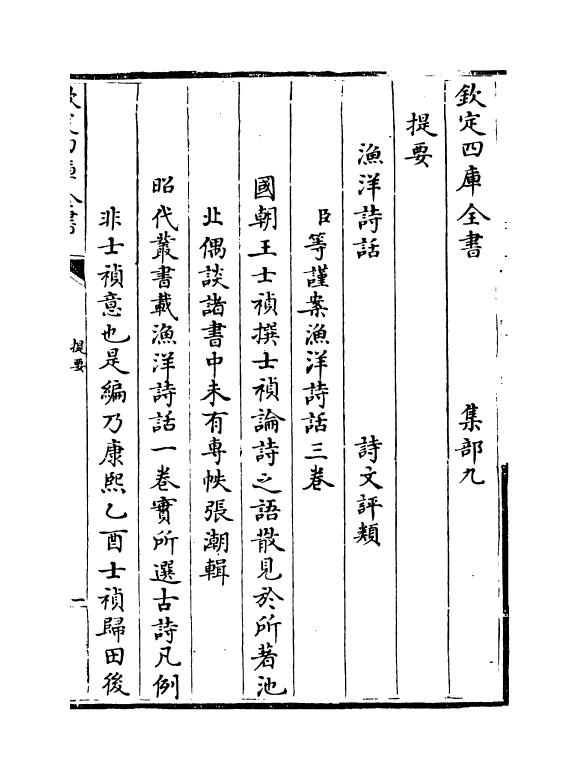 欽定四庫全書　集部九
提要
漁洋詩話　詩文評類
臣等謹案漁洋詩話三卷
國朝王士禎撰士禎論詩之語散見於所著池
北偶談諸書中未有專帙張潮輯
昭代叢書載漁洋詩話一卷實所選古詩凡例
非士禎意也是編乃康熙乙酉士禎歸田後
欽定四庫全書
提要
一